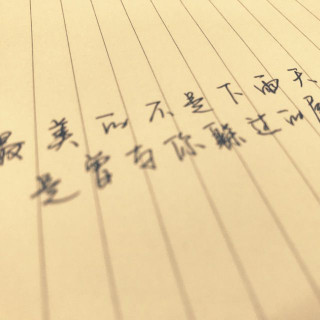 最美的不是下雨天、
是曾与你躲过的屋